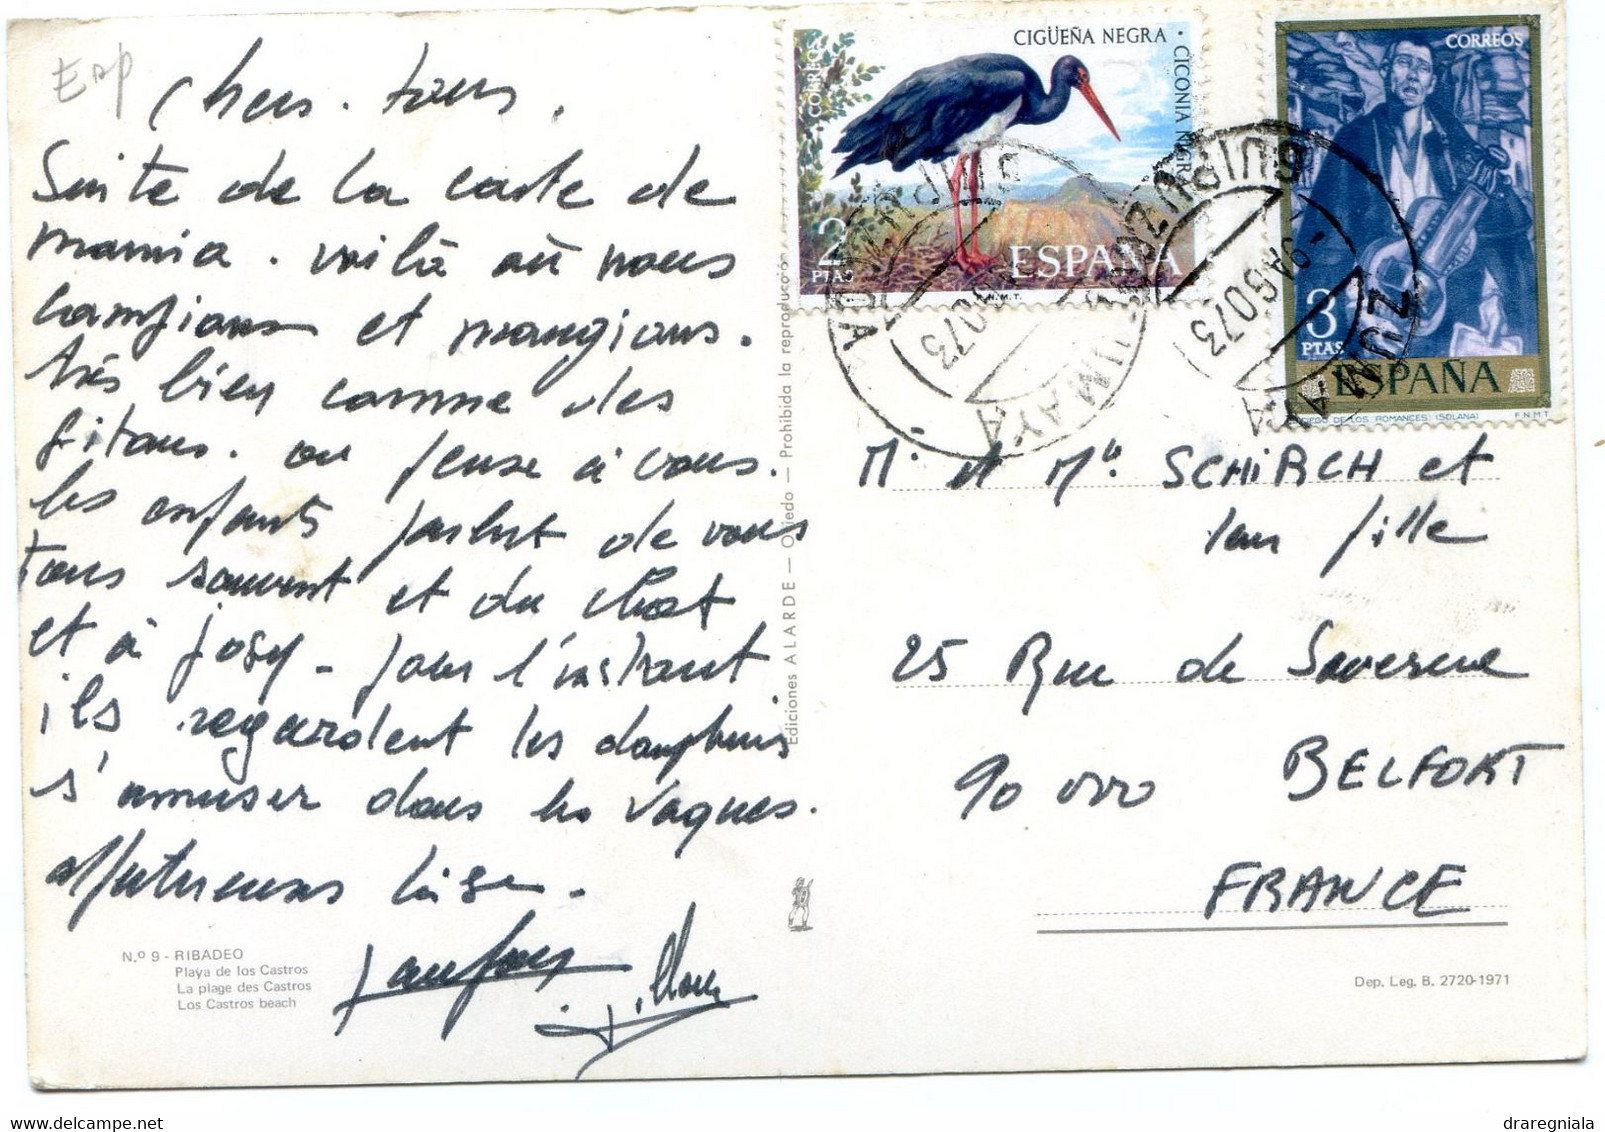 Esp
Chers tous.
Suite de la carte de
mamia. voilà où nous
campions et mangions.
très bien comme des
gitans. on pense à vous.
les enfants parlent de vous
tous souvent et du chat
et à Josy - pour l'instant
ils regardent les dauphins
s'amuser dans les vagues.
affectueuses bises.
N.º 9 - RIBADEO
Playa de los Castros
La plage des Castros
Los Castros beach
Ediciones ALARDE — Oviedo — Prohibida la reproducción
CIGÜEÑA NEGRA · CICONIA NIGRA
CORREOS
2
PTAS
ESPAÑA
F.N.M.T.
CORREOS
3
PTAS
ESPAÑA
CIEGO DE LOS ROMANCES (SOLANA) F.N.M.T.
ZUMAYA
-9AGO73
ZUMAYA
-9AGO73
Mr et Me SCHIRCH et
leur fille
25 Rue de Saverne
90 000 BELFORT
FRANCE
Dep. Leg. B. 2720-1971
draregniala
delcampe.net